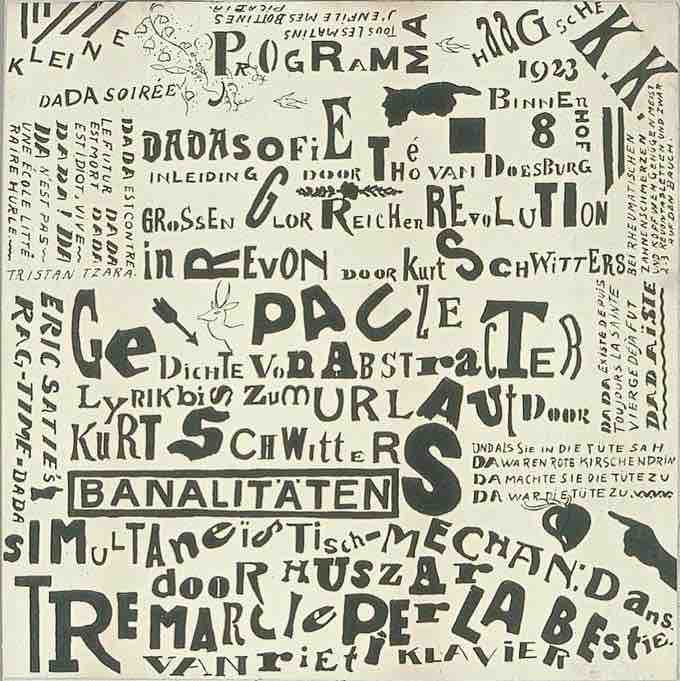 KLEINE
DADA SOIRÉE
TOUS LES MATINS
J'ENFILE MES BOTTINES
PICABIA.
PROGRAMMA
HAAGSCHE K.K
1923
BINNENHOF 8
DADASOFiE
INLEIDING DOOR Théo VAN DOESBURG
GROSSEN GLORREICHEN REVOLUTION
in REVON DOOR Kurt SCHWITTERS
DADA EST CONTRE
LE FUTUR DADA
EST MORT DADA
EST IDIOT, VIVE
DADA! DADA
DA N'EST PAS
UNE ÉCOLE LITTÉ
RAIRE HURLE
TRISTAN TZARA.
BEI RHEUMATISCHEN
ZAHNENSCHMERZEN
UND KOPFWEH GENÜGEN MEIST
2-3 REVUE TABLETTEN UND ZWAR
AUF DEN BAUCH.
PAUZE
DADA EXISTE DEPUIS
TOUJOURS LA SAINTE
VIERGE DÉJÀ FUT
DADAÏSTE
GeDICHTE VON ABSTracTER
LyRIK biS ZUM URLAUt DOOR
KURT SCHWitteRS
ERIC SATIE'S
RAG-TIME=DADA
UND ALS SIE IN DIE TÜTE SAH
DA WAREN ROTE KIRSCHEN DRIN
DA MACHTE SIE DIE TÜTE ZU
DA WAR DIE TÜTE ZU.
BANALITÄTEN
SIMULTANeïSTisch-MECHAN: Dans.
dooR HUSZAr
TRE MARCIe PEr LA BEstie.
VAN rieti KLAVIER